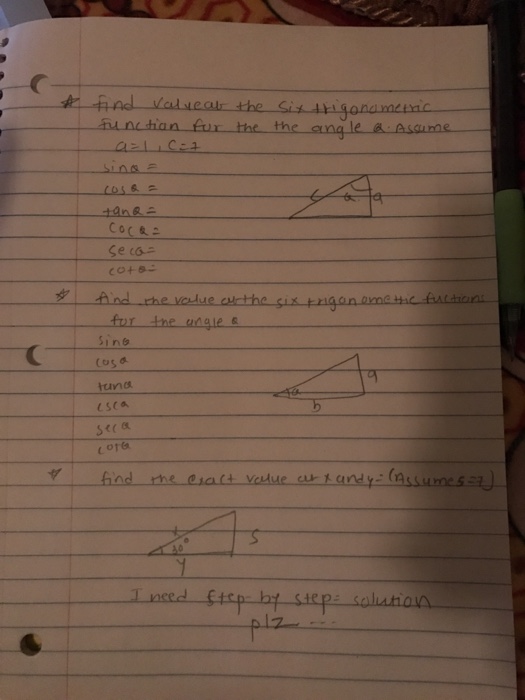 * find value at the six trigonometric
function for the the angle α. Assume
a=1, C=7
sin α =
cos α =
tan α =
Coc α =
Sec α =
cot α =
c α a
* find the value at the six trigonometric fuctions
for the angle α
sin α
cos α
tan α
csc α
sec α
cot α
a
α
b
* find the exact value at x and y = (Assume s=7)
x
30° s
y
I need step-by step= solution
plz ...